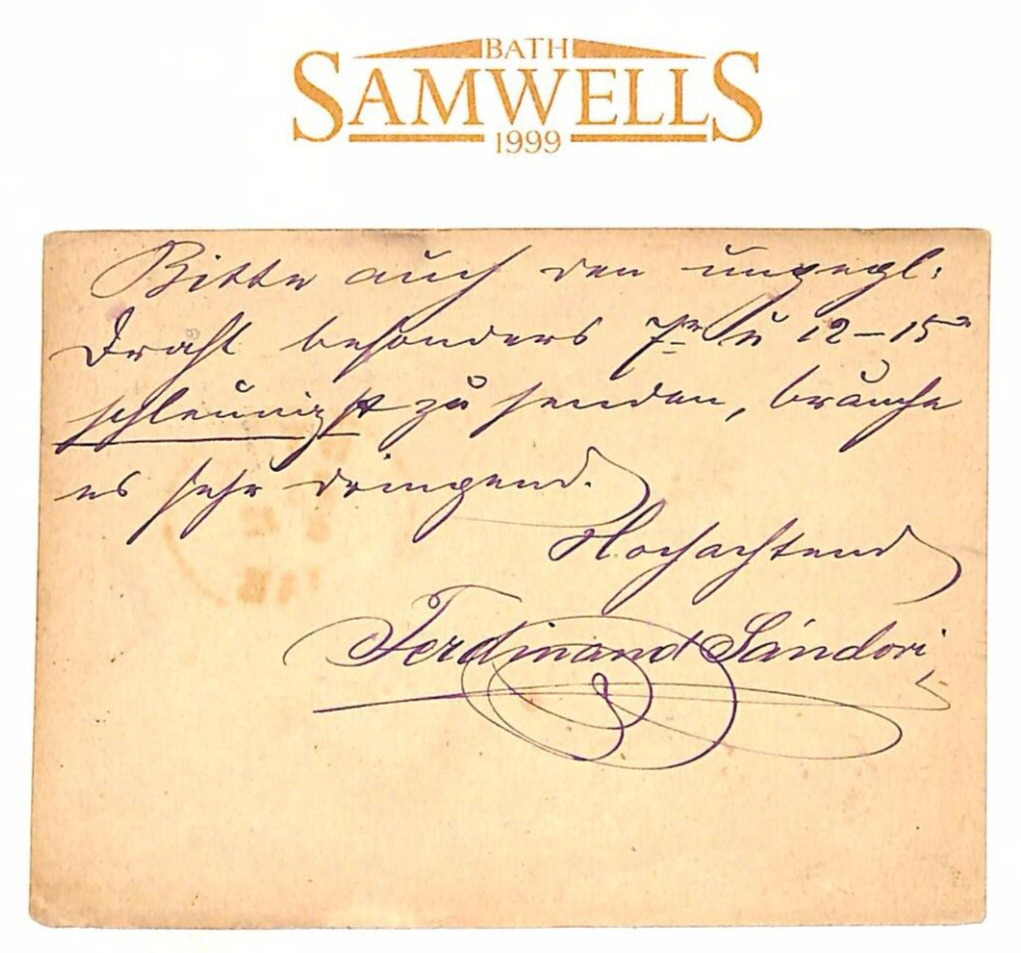 BATH
SAMWELLS
1999
Bitte auch den ungegl.
Draht besonders 7er u 12–15er
schleunigst zu senden, brauche
es sehr dringend.
Hochachtend
Ferdinand Sándori